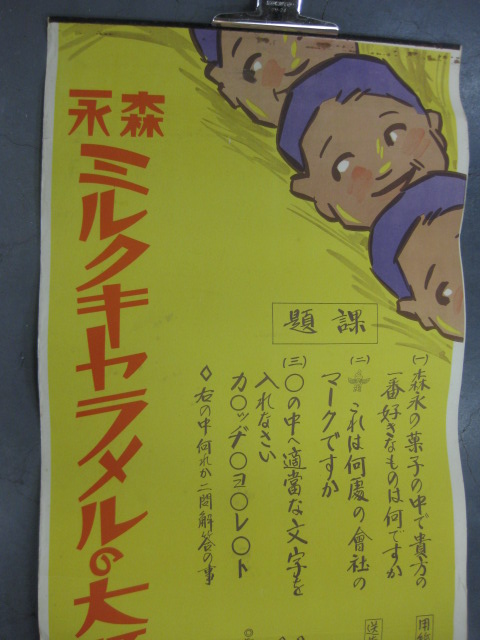 森永
ミルクキャラメルの大
課題
(一)森永の菓子の中で貴方の
一番好きなものは何ですか
(二)これは何處の會社の
マークですか
(三)〇の中へ適當な文字を
入れなさい
カ〇ッヂ〇ヨ〇レ〇ト
◇右の中何れか二問解答の事
用
送